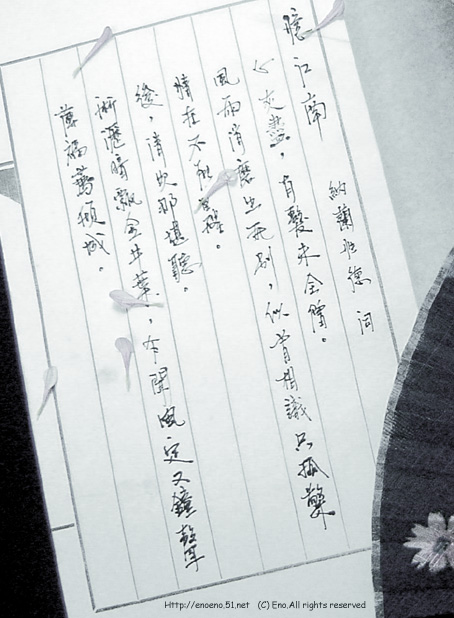 憶江南
納蘭性德 詞
心灰盡，有髮未全僧。
風雨消磨生死別，似曾相識只孤檠
情在不能醒。
後，清吹那堪聽。
淅瀝暗飄金井葉，乍聞風定又鐘聲
薄福薦傾城。
Http://enoeno.51.net (C) Eno,All rights reserved